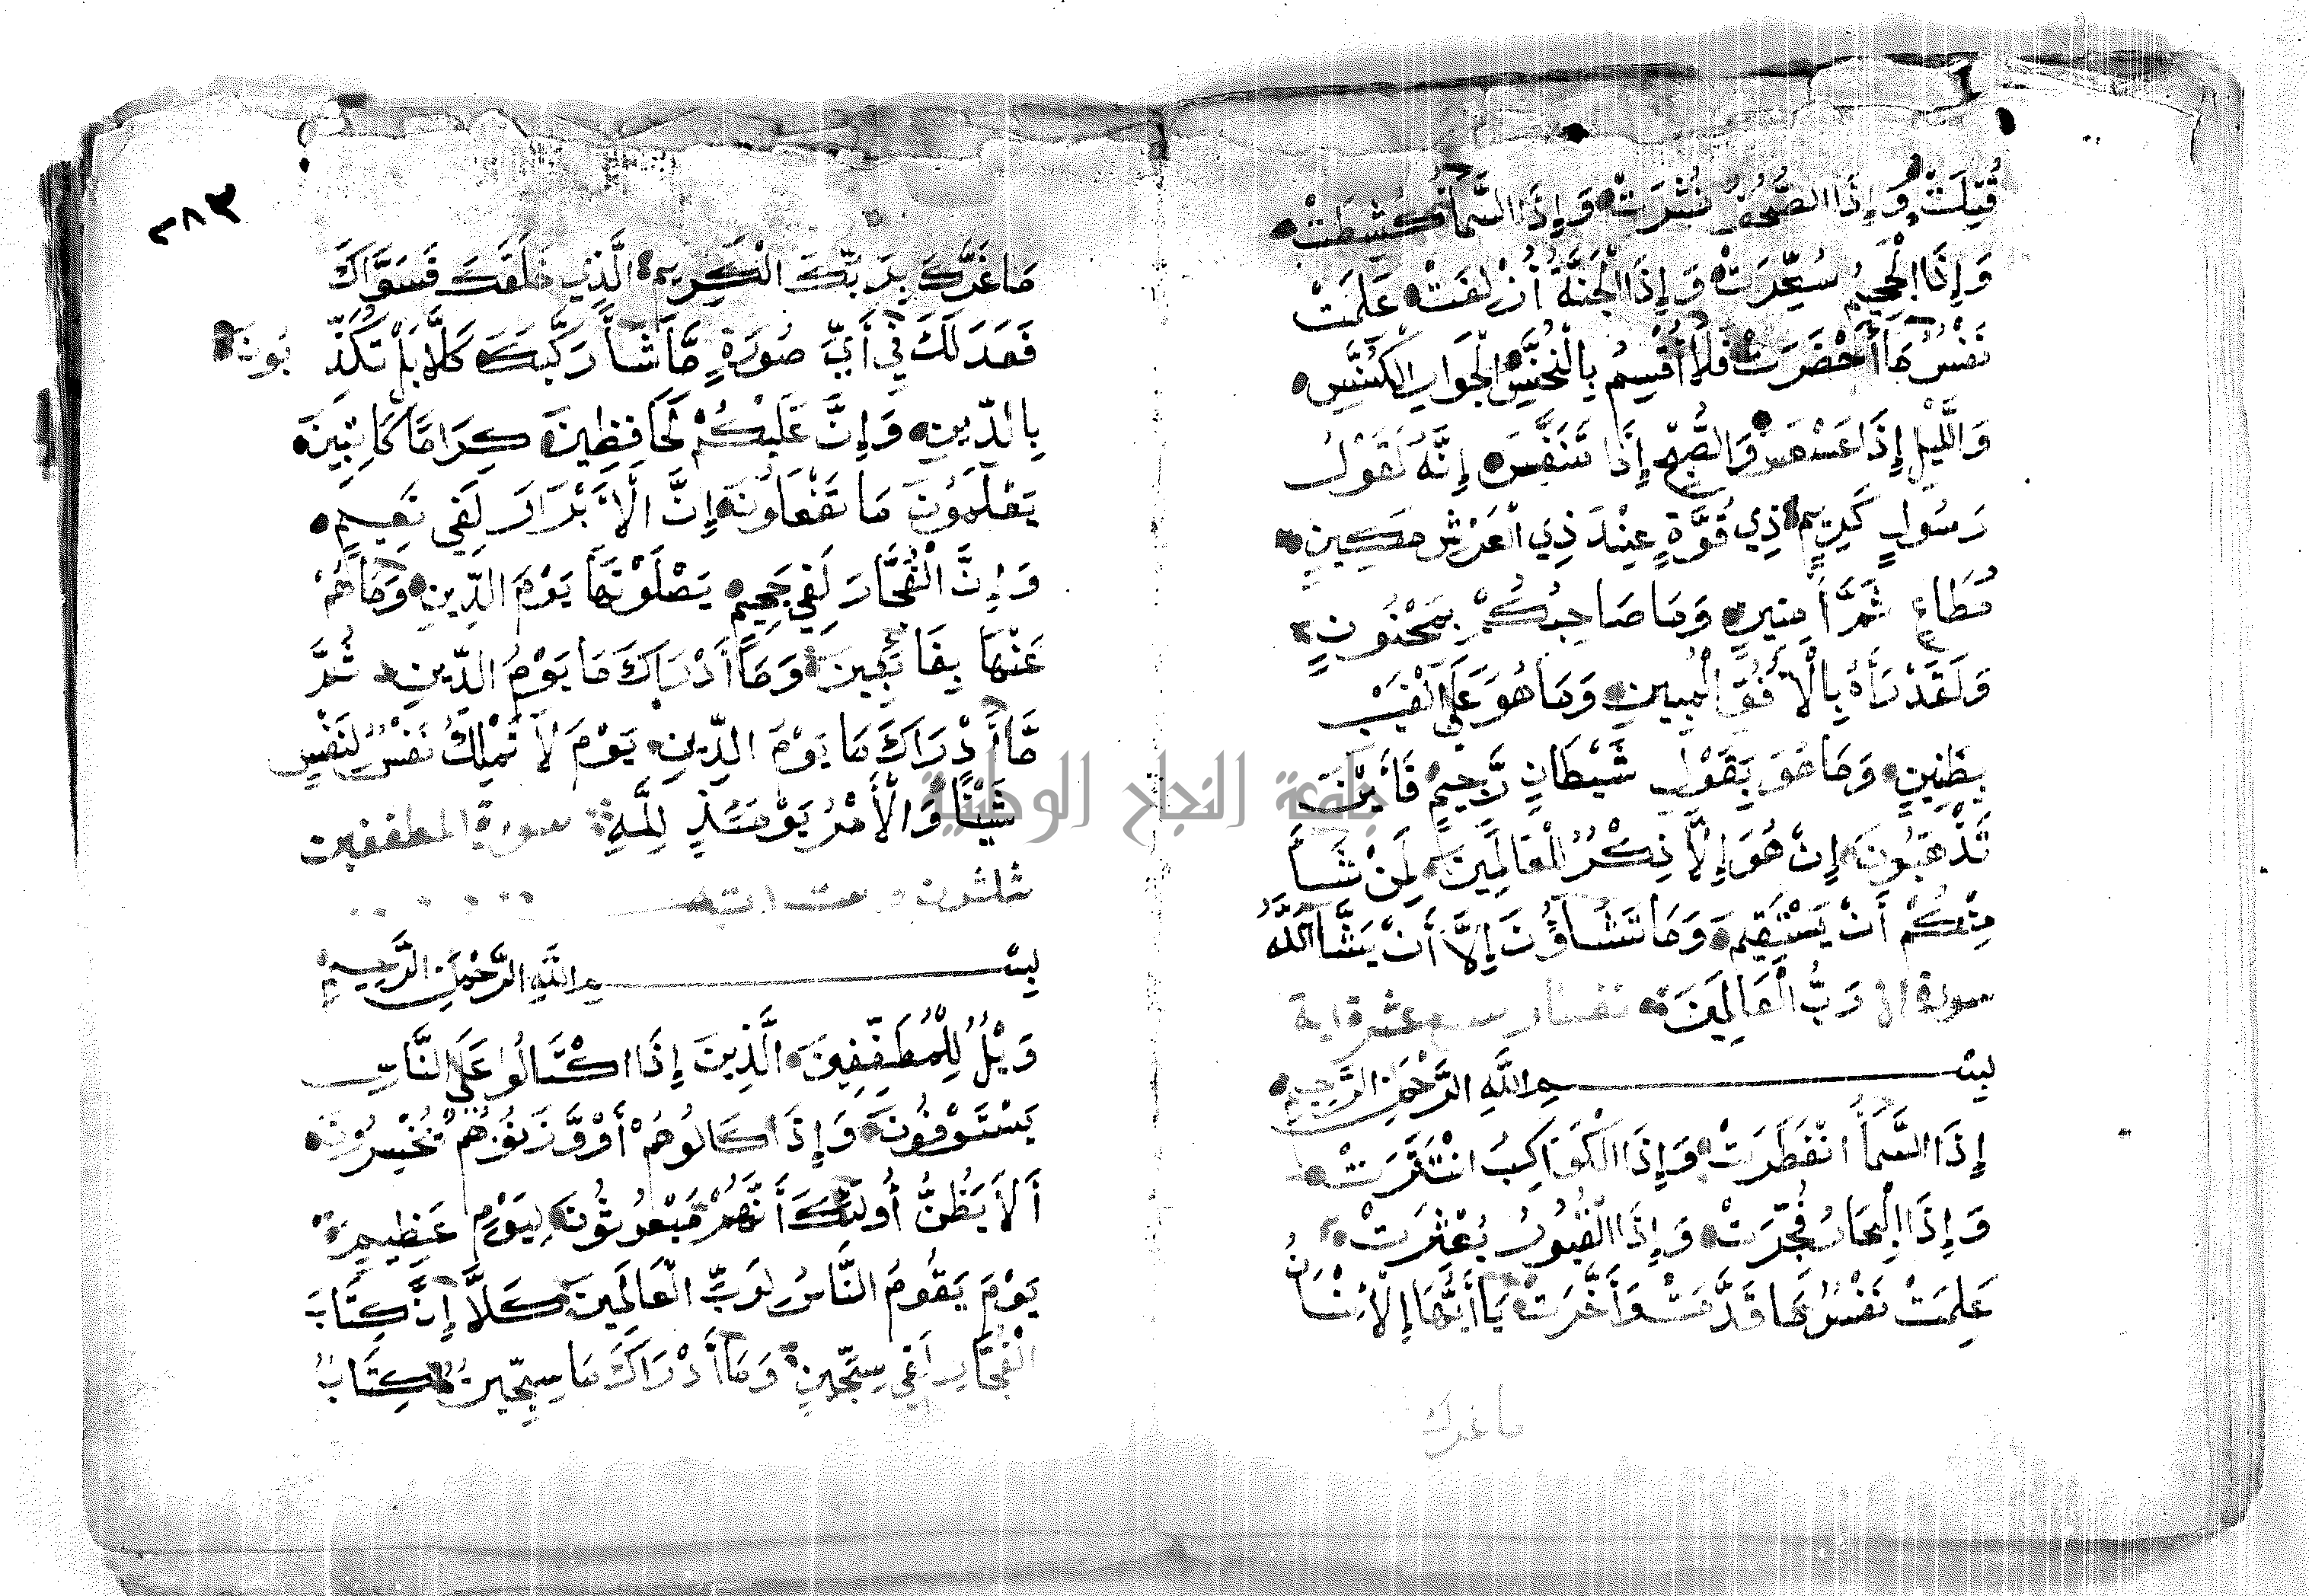 قُتِلَتْ وَإِذَا الصُّحُفُ نُشِرَتْ وَإِذَا السَّمَآءُ كُشِطَتْ
وَإِذَا الْجَحِيمُ سُعِّرَتْ وَإِذَا الْجَنَّةُ أُزْلِفَتْ عَلِمَتْ
نَفْسٌ مَا أَحْضَرَتْ فَلَا أُقْسِمُ بِالْخُنَّسِ الْجَوَارِ الْكُنَّسِ
وَاللَّيْلِ إِذَا عَسْعَسَ وَالصُّبْحِ إِذَا تَنَفَّسَ إِنَّهُ لَقَوْلُ
رَسُولٍ كَرِيمٍ ذِي قُوَّةٍ عِنْدَ ذِي الْعَرْشِ مَكِينٍ
مُطَاعٍ ثَمَّ أَمِينٍ وَمَا صَاحِبُكُمْ بِمَجْنُونٍ
وَلَقَدْ رَآهُ بِالْأُفُقِ الْمُبِينِ وَمَا هُوَ عَلَى الْغَيْبِ
بِظَنِينٍ وَمَا هُوَ بِقَوْلِ شَيْطَانٍ رَجِيمٍ فَأَيْنَ
تَذْهَبُونَ إِنْ هُوَ إِلَّا ذِكْرٌ لِلْعَالَمِينَ لِمَنْ شَآءَ
مِنْكُمْ أَنْ يَسْتَقِيمَ وَمَا تَشَاؤُنَ إِلَّا أَنْ يَشَآءَ اللَّهُ
سورة الا رَبُّ الْعَالَمِينَ نفطار سع عشرة اية
بِسْمِ اللَّهِ الرَّحْمَنِ الرَّحِيمِ
إِذَا السَّمَآءُ انْفَطَرَتْ وَإِذَا الْكَوَاكِبُ انْتَثَرَتْ
وَإِذَا الْبِحَارُ فُجِّرَتْ وَإِذَا الْقُبُورُ بُعْثِرَتْ
عَلِمَتْ نَفْسٌ مَا قَدَّمَتْ وَأَخَّرَتْ يَا أَيُّهَا الْإِنْسَانُ
ما غرك
٢٨٣
مَا غَرَّكَ بِرَبِّكَ الْكَرِيمِ الَّذِي خَلَقَكَ فَسَوَّاكَ
فَعَدَلَكَ فِي أَيِّ صُورَةٍ مَّا شَآءَ رَكَّبَكَ كَلَّا بَلْ تُكَذِّبُونَ
بِالدِّينِ وَإِنَّ عَلَيْكُمْ لَحَافِظِينَ كِرَامًا كَاتِبِينَ
يَعْلَمُونَ مَا تَفْعَلُونَ إِنَّ الْأَبْرَارَ لَفِي نَعِيمٍ
وَإِنَّ الْفُجَّارَ لَفِي جَحِيمٍ يَصْلَوْنَهَا يَوْمَ الدِّينِ وَمَا هُمْ
عَنْهَا بِغَائِبِينَ وَمَا أَدْرَاكَ مَا يَوْمُ الدِّينِ ثُمَّ
مَا أَدْرَاكَ مَا يَوْمُ الدِّينِ يَوْمَ لَا تَمْلِكُ نَفْسٌ لِنَفْسٍ
شَيْئًا وَالْأَمْرُ يَوْمَئِذٍ لِلَّهِ سورة المطففين
ثلثون وست اية
بِسْمِ اللَّهِ الرَّحْمَنِ الرَّحِيمِ
وَيْلٌ لِلْمُطَفِّفِينَ الَّذِينَ إِذَا اكْتَالُوا عَلَى النَّاسِ
يَسْتَوْفُونَ وَإِذَا كَالُوهُمْ أَوْ وَّزَنُوهُمْ يُخْسِرُونَ
أَلَا يَظُنُّ أُولَئِكَ أَنَّهُمْ مَبْعُوثُونَ لِيَوْمٍ عَظِيمٍ
يَوْمَ يَقُومُ النَّاسُ لِرَبِّ الْعَالَمِينَ كَلَّا إِنَّ كِتَابَ
الْفُجَّارِ لَفِي سِجِّينٍ وَمَا أَدْرَاكَ مَا سِجِّينٌ كِتَابٌ
جامعة النجاح الوطنية